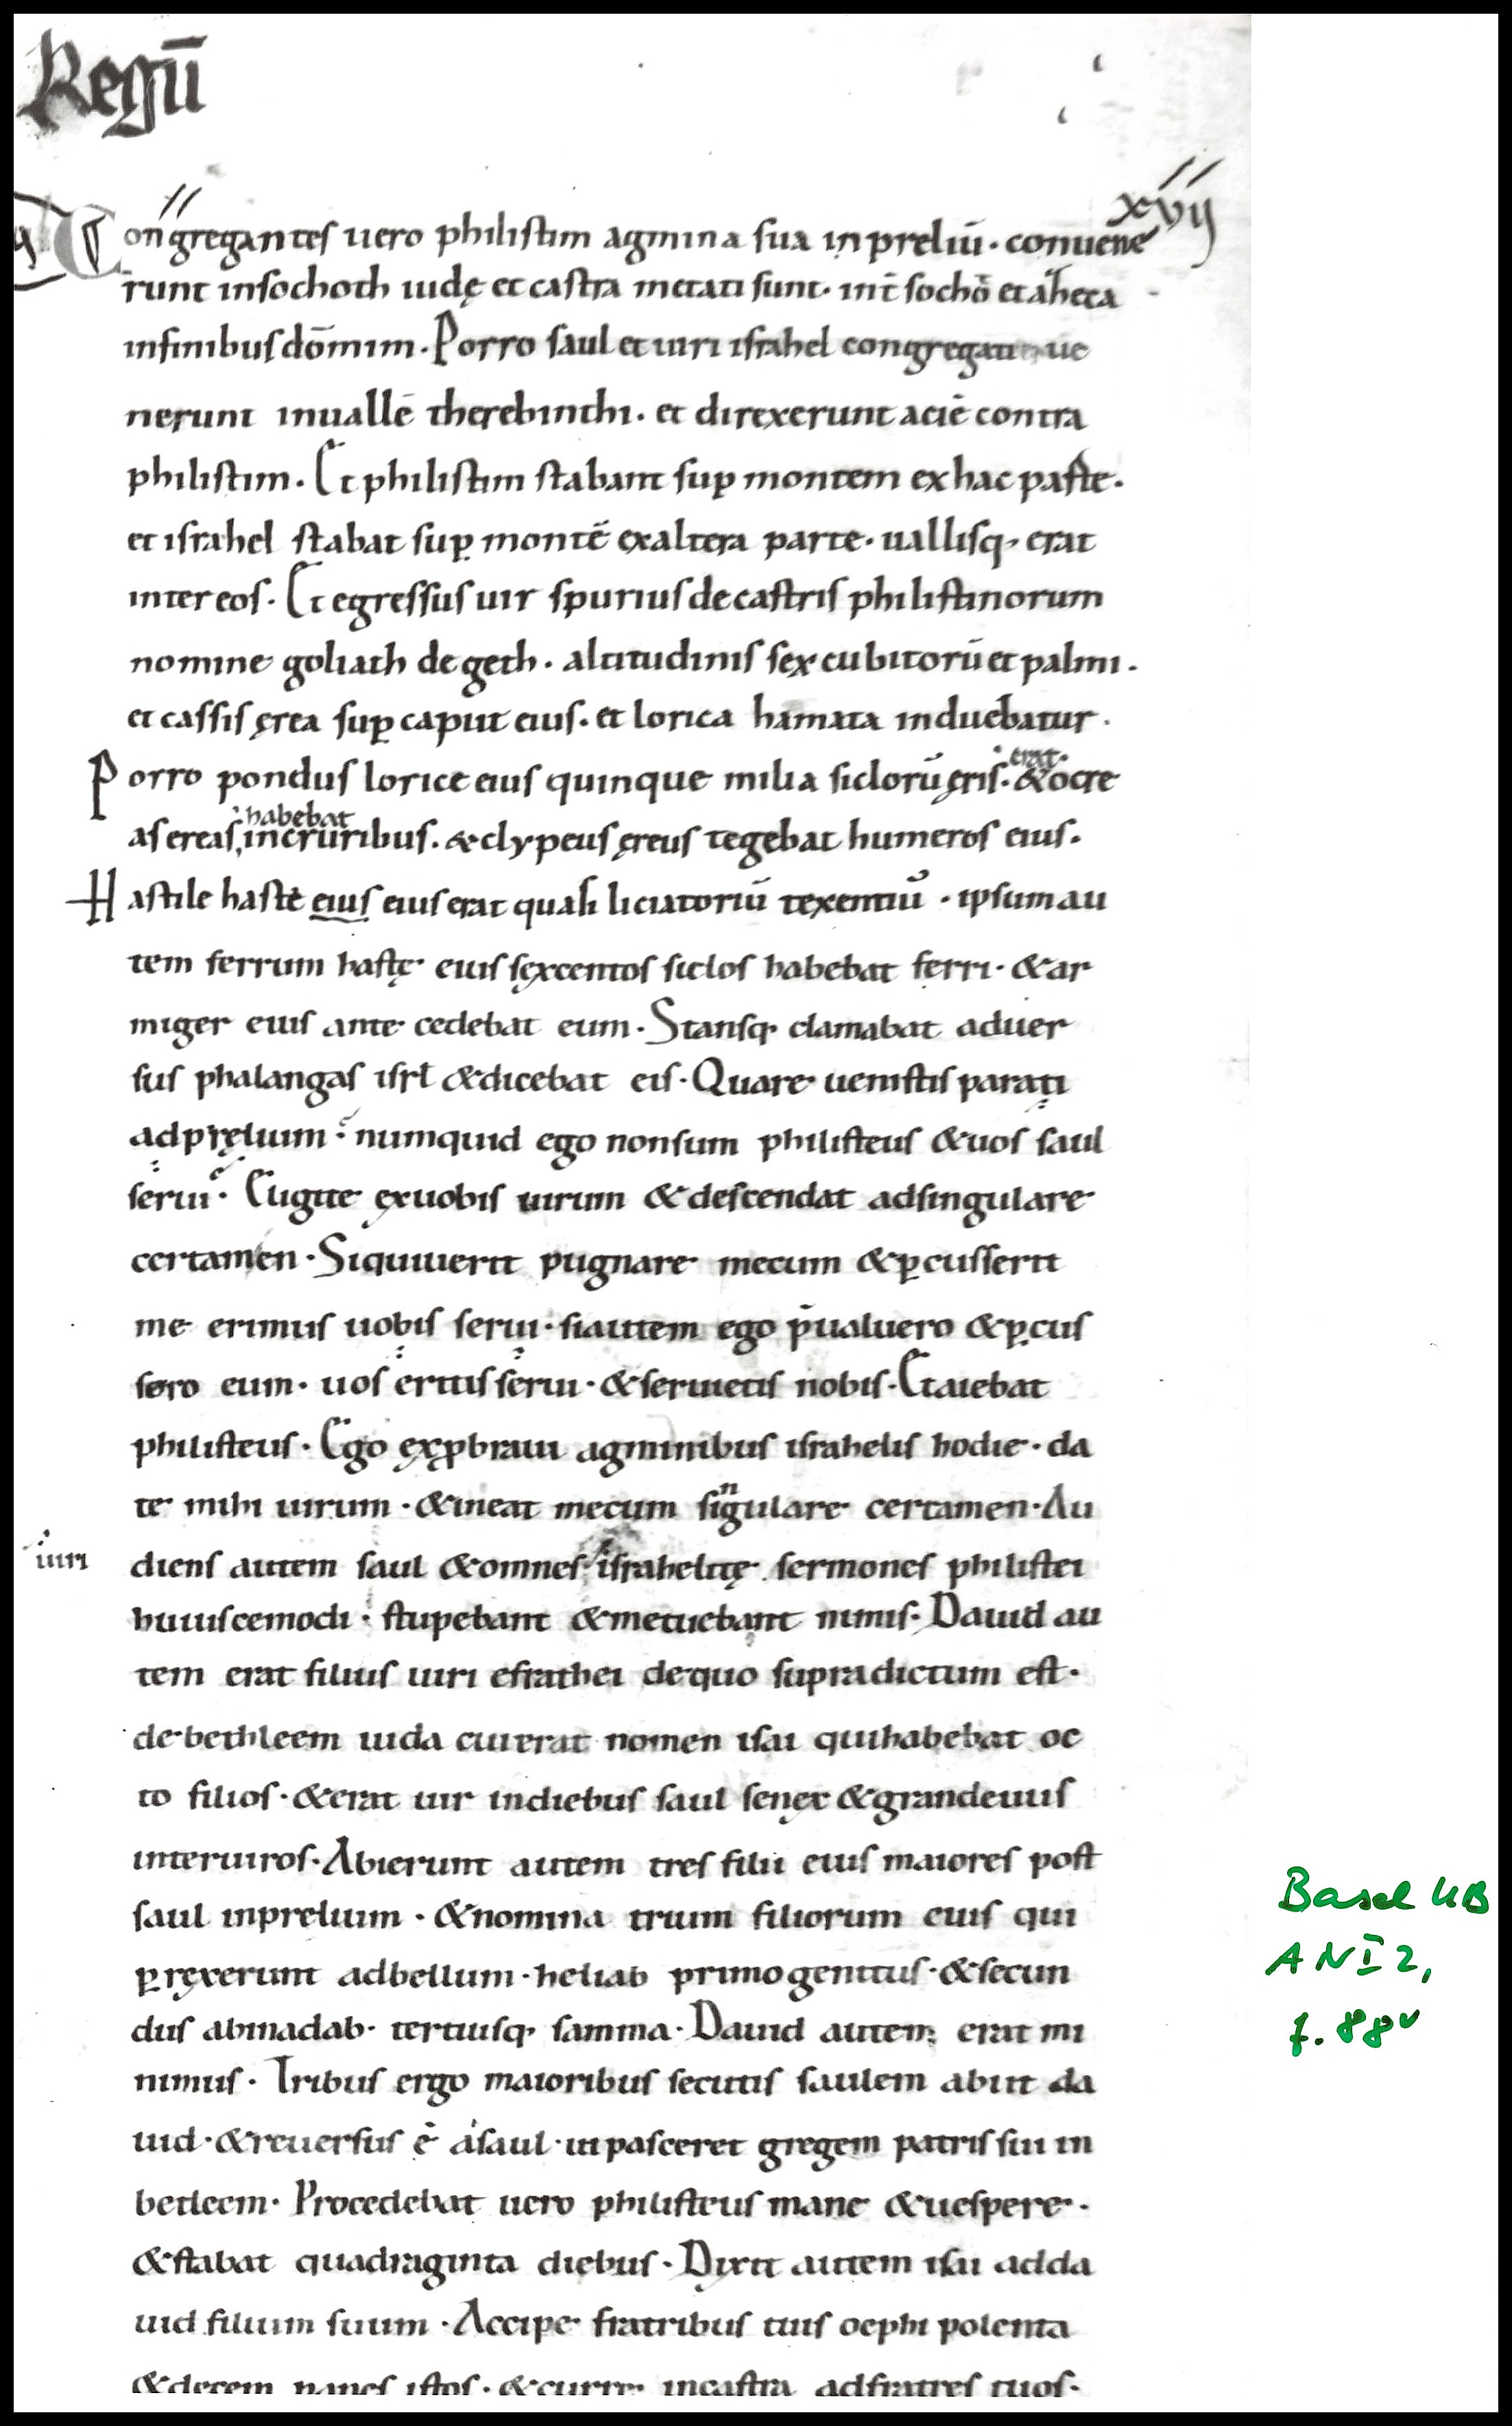 Regū
xvij
Congregantes uero philistim agmina sua in preliū · conuene
runt insochoth iudę et castra metati sunt · int̄ sochō et aheca
infinibus dōmim · Porro saul et uiri israhel congregati ue
nerunt inuallē therebinthi · et direxerunt aciē contra
philistim · Et philistim stabant suꝑ montem ex hac parte ·
et israhel stabat suꝑ montē exaltera parte · uallisq; erat
inter eos · Et egressus uir spurius de castris philistinorum
nomine goliath de geth · altitudinis sex cubitorū et palmi ·
et cassis ęrea suꝑ caput eius · et lorica hamata induebatur ·
Porro pondus lorice eius quinque milia siclorū ęris · erat · & ocre
as ereas, habebat incruribus · & clypeus ęreus tegebat humeros eius ·
Hastile haste eius eius erat quasi liciatoriū texentiū · ipsum au
tem ferrum hastę eius sexcentos siclos habebat ferri · & ar
miger eius ante cedebat eum · Stansq; clamabat aduer
sus phalangas isrl̄ & dicebat eis · Quare uenistis parati
adpręlium · numquid ego nonsum philisteus & uos saul
serui · Eligite exuobis uirum & descendat adsingulare
certamen · Siquiuerit pugnare mecum & ꝑcusserit
me erimus uobis serui · siautem ego p̄ualuero & ꝑcus
sero eum · uos eritis serui · & seruietis nobis · Et aiebat
philisteus · Ego exꝓbraui agminibus israhelis hodie · da
te mihi uirum · & ineat mecum singulare certamen · Au
uiri diens autem saul & omnes israhelitę sermones philistei
huiuscemodi · stupebant & metuebant nimis · Dauid au
tem erat filius uiri efrathei dequo supradictum est ·
de bethleem iuda cui erat nomen isai quihabebat oc
to filios · & erat uir indiebus saul senex & grandeuus
interuiros · Abierunt autem tres filii eius maiores post
saul inprelium · & nomina trium filiorum eius qui
ꝑrexerunt adbellum · heliab primogenitus · & secun
dus abinadab · tertiusq; samma · Dauid autem erat mi
nimus · Tribus ergo maioribus secutis saulem abiit da
uid · & reuersus ē asaul · ut pasceret gregem patris sui in
betleem · Procedebat uero philisteus mane & uespere ·
& stabat quadraginta diebus · Dixit autem isai adda
uid filium suum · Accipe fratribus tuis oephi polenta
& decem panes istos · & curre incastra adfratres tuos ·
Basel UB
A N I 2,
f. 88v